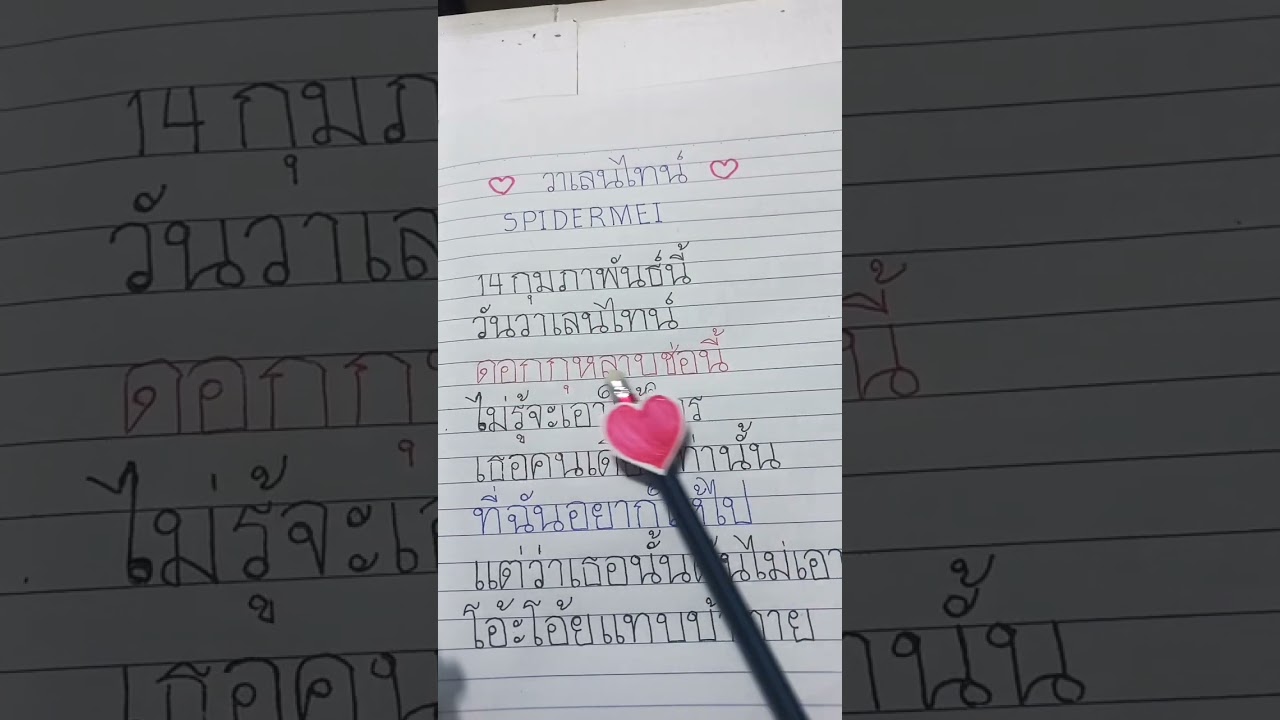 วาเลนไทน์
SPIDERMEI
14 กุมภาพันธ์นี้
วันวาเลนไทน์
ดอกกุหลาบช่อนี้
ไม่รู้จะเอา
เธอคน นั้น
ที่ฉันอยาก ไป
แต่ว่าเธอนั้น ไม่เอา
โอ๊ะโอ้ยแทบ